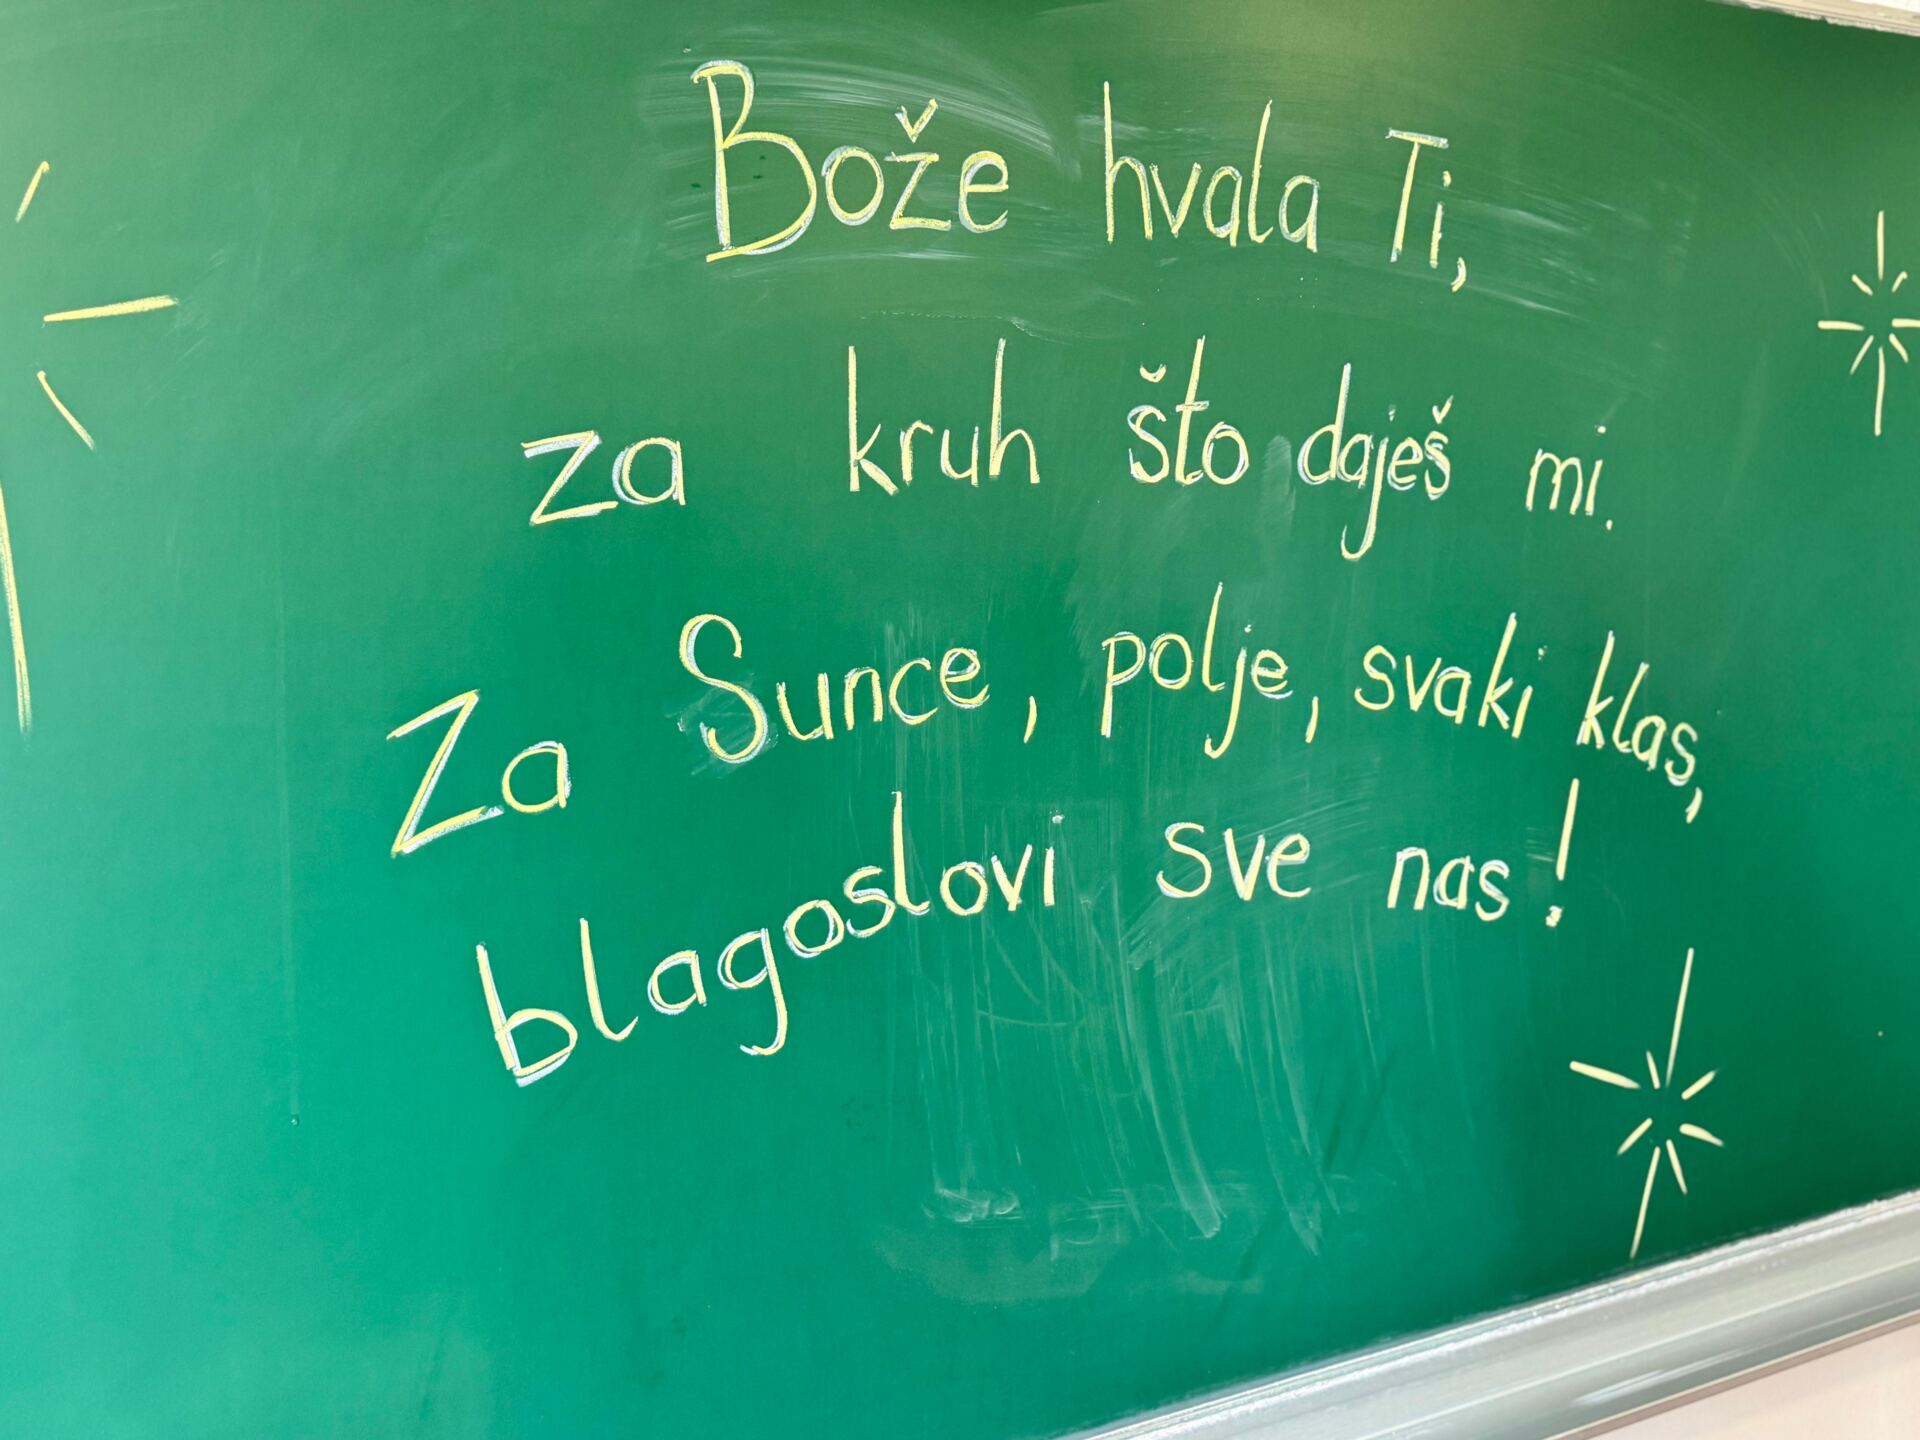 Bože hvala Ti,
za kruh što daješ mi.
Za Sunce, polje, svaki klas,
blagoslovi sve nas!